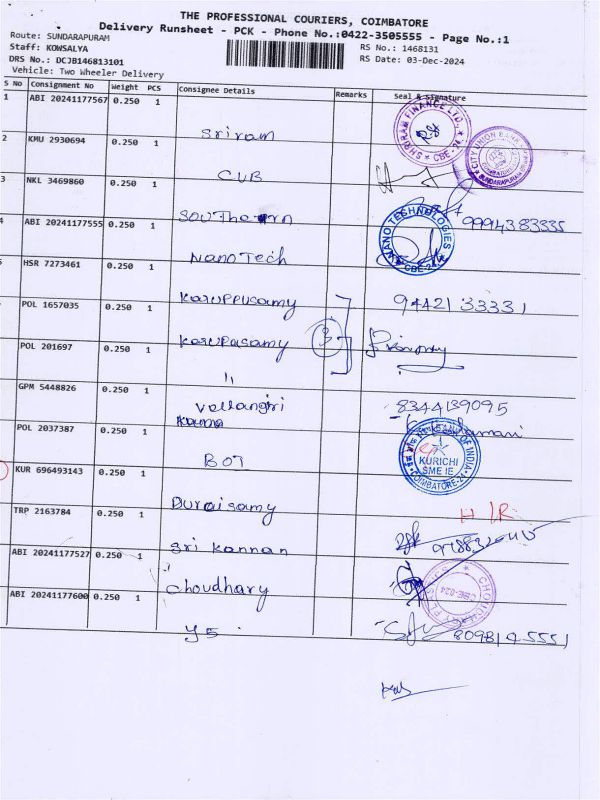 THE PROFESSIONAL COURIERS, COIMBATORE
Delivery Runsheet - PCK - Phone No.:0422-3505555 - Page No.:1
Route: SUNDARAPURAM
Staff: KOWSALYA RS No.: 1468131
DRS No.: DCJB146813101 RS Date: 03-Dec-2024
Vehicle: Two Wheeler Delivery
S No Consignment No Weight PCS Consignee Details Remarks Seal & Signature
1 ABI 20241177567 0.250 1 Sriram SHRIRAM FINANCE LTD. CBE-24
2 KMU 2930694 0.250 1 CUB CITY UNION BANK SUNDARAPURAM
3 NKL 3469860 0.250 1 Southern 9994383335
4 ABI 20241177555 0.250 1 Nano Tech NANO TECHNOLOGIES CBE-24
HSR 7273461 0.250 1 Karuppusamy 9442133331
POL 1657035 0.250 1 Karupasamy 3
POL 201697 0.250 1 "
GPM 5448826 0.250 1 Vellangiri 8344139095
Kanna
POL 2037387 0.250 1 BOI BANK OF INDIA KURICHI SME IE COIMBATORE-21
KUR 696493143 0.250 1 Duraisamy
TRP 2163784 0.250 1 Sri Kannan
ABI 20241177527 0.250 1 Choudhary CBE-024
ABI 20241177600 0.250 1 Y5 8098195551